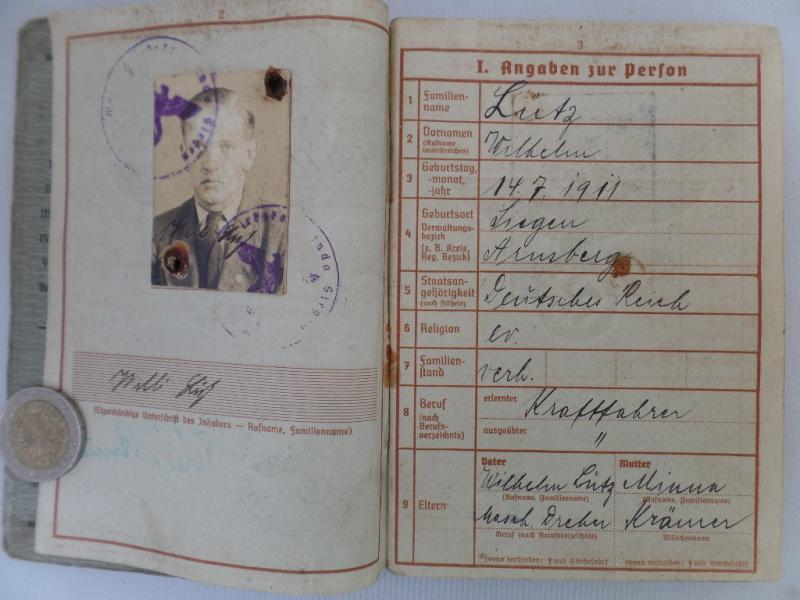 2
Willi Lütz
(Eigenhändige Unterschrift des Inhabers — Rufname, Familienname)
3
I. Angaben zur Person
1 Familien-
name
Lütz
2 Vornamen
(Rufname
unterstreichen)
Wilhelm
3 Geburtstag,
-monat,
-jahr
14.7.1911
4 Geburtsort
Verwaltungs-
bezirk
(z. B. Kreis,
Reg. Bezirk)
Siegen
Arnsberg
5 Staatsan-
gehörigkeit
(auch frühere)
Deutsches Reich
6 Religion
ev.
7 Familien-
stand
verh.
8 Beruf
(nach
Berufs-
verzeichnis)
erlernter Kraftfahrer
ausgeübter "
9 Eltern
Vater
Wilhelm Lütz
(Rufname, Familienname)
Masch. Dreher
Beruf (nach Berufsverzeichnis)
(wenn verstorben: † und Sterbejahr)
Mutter
Minna
(Rufname, Familienname)
Krämer
Mädchenname
(wenn verstorben: † und Sterbejahr)